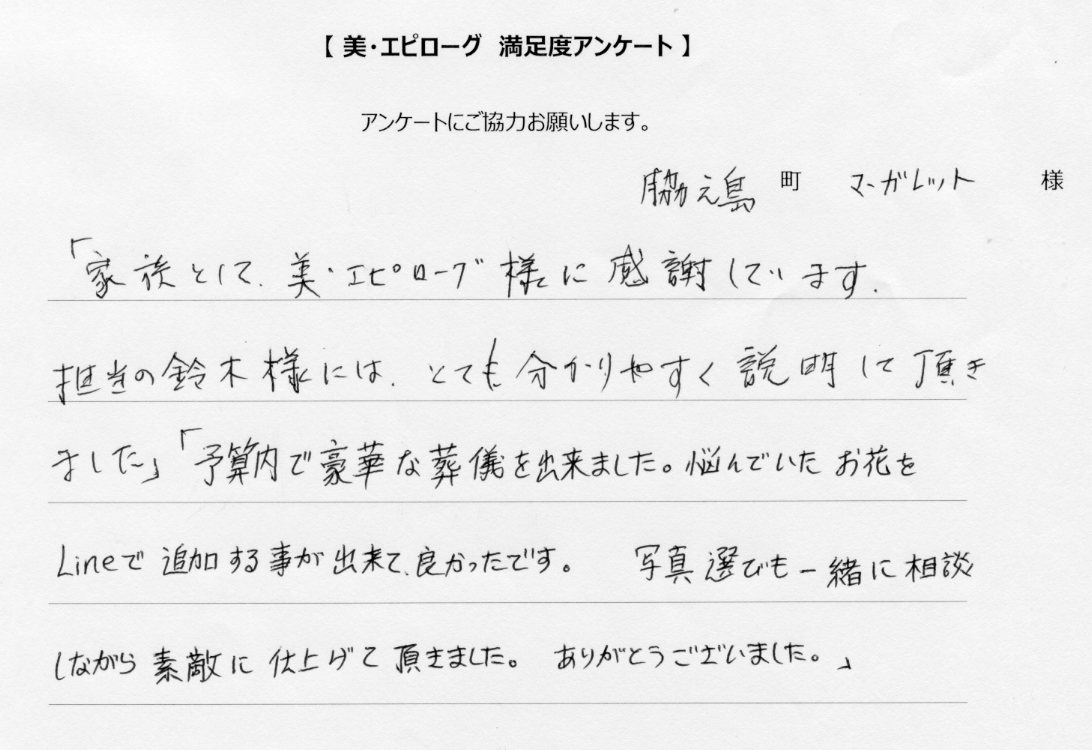 【 美・エピローグ 満足度アンケート 】
アンケートにご協力お願いします。
脇之島 町 マーガレット 様
「家族として、美・エピローグ様に感謝しています.
担当の鈴木様には、とても分かりやすく説明して頂き
ました」「予算内で豪華な葬儀を出来ました。悩んでいたお花を
Lineで追加する事が出来て、良かったです。 写真選びも一緒に相談
しながら素敵に仕上げて頂きました。 ありがとうございました。」